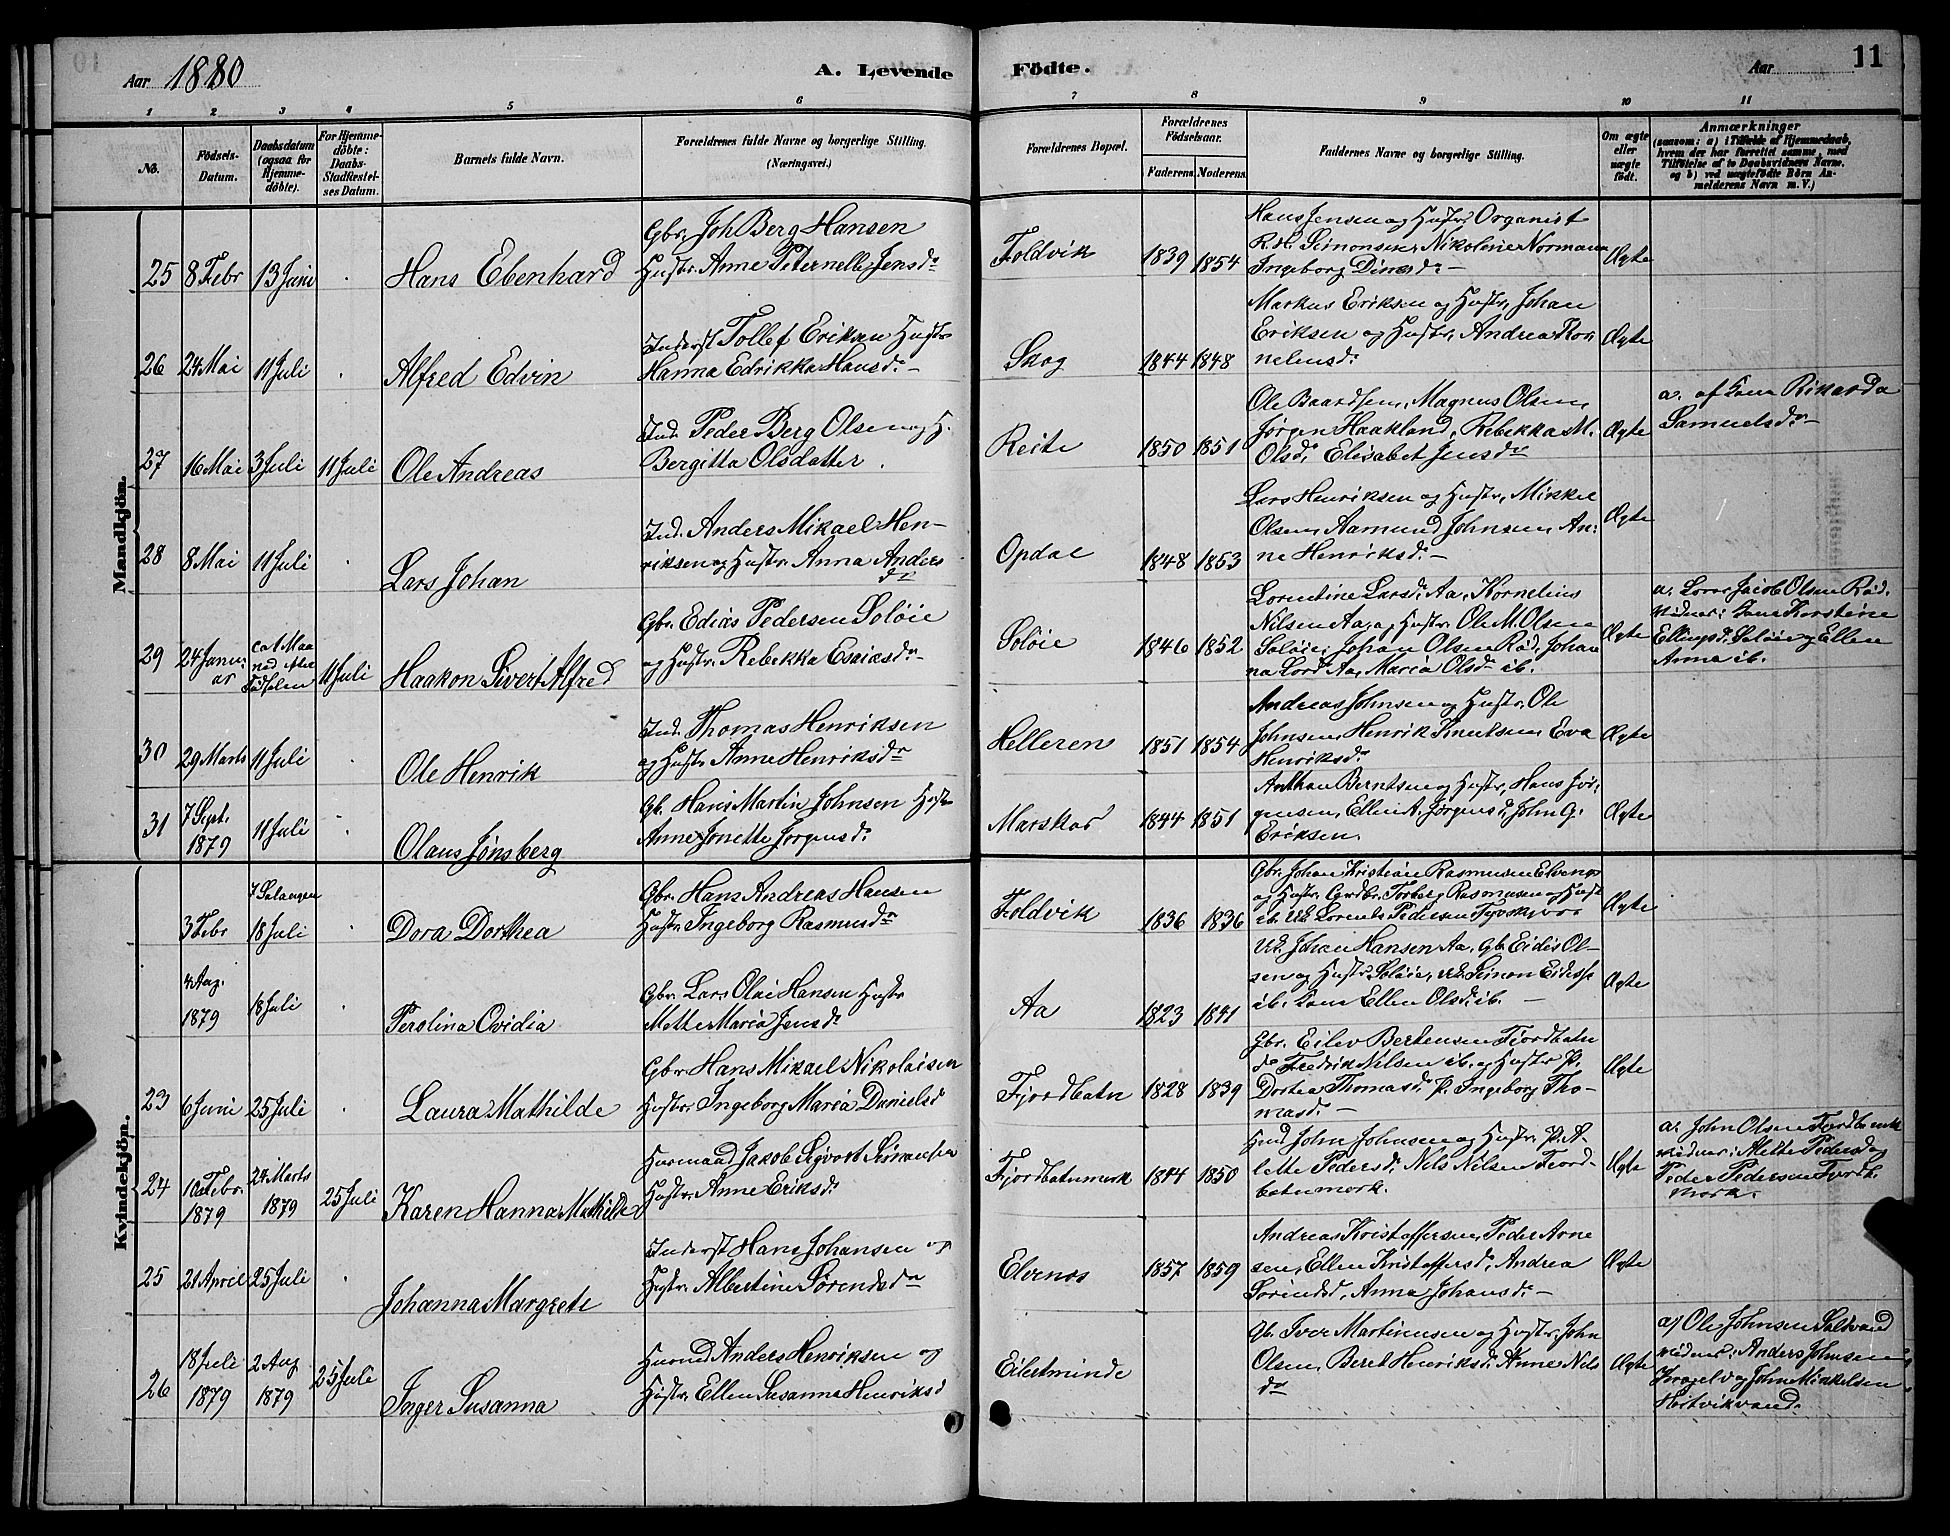 Aar 1880
A. Levende Födte.
Aar
11
1 2 3 4 5 6 7 8 9 10 11
No.
Födsels-Datum.
Daabsdatum (ogsaa for Hjemme-döbte).
For Hjemme-döbte: Daabs-Stadfæstel-ses Datum.
Barnets fulde Navn.
Forældrenes fulde Navne og borgerlige Stilling. (Næringsvei.)
Forældrenes Bopæl.
Forældrenes Födselsaar.
Faderens. Moderens.
Faddernes Navne og borgerlige Stilling.
Om ægte eller uægte födt.
Anmærkninger
(saasom: a) i Tilfælde af Hjemmedaab,
hvem der har forrettet samme, med
Tilföielse af to Daabsvidners Navne,
og b) ved uægtefödte Börn An-
melderens Navn m. V.)
Mandkjön.
25 8 Febr 13 Juni Hans Ebenhard
Gbr. Joh Berg Hansen
Hustr. Anne Peternelle Jensdr
Foldvik 1839 1854
Hans Jensen og Hustr, Organist
R. H. Simonsen, Nikoline Normann
Ingeborg Dinesdr
Ægte
26 24 Mai 11 Juli Alfred Edvin
Inderst Tollef Eriksen Hustr
Hanna Edrikka Hansdr
Skog 1844 1848
Markus Eriksen og Hustr, Johan
Eriksen og Hustr, Andrea Kor
nelius d.
Ægte
27 16 Mai 3 Juli 11 Juli Ole Andreas
Ind. Peder Berg Olsen og H.
Bergitta Olsdatter.
Reite 1850 1851
Ole Baardsen, Magnus Olsen,
Jørgen Haakland, Rebekka M.
Olsd, Elisabet Jensdr
Ægte
a. af Kone Rikarda
Samuelsdr
28 8 Mai 11 Juli Lars Johan
Ind. Anders Mikael Hen-
riksen og Hustr. Anna Anders
dr
Opdal 1848 1853
Lars Henriksen og Hustr, Mikkel
Olsen, Aamund Johnsen, An-
ne Henriksd.
Ægte
29 24 Janu-ar ca 1 Maaned efter Fødselen 11 Juli Haakon Sivert Alfred
Gbr. Edias Pedersen Soløie
og Hustr. Rebekka Esaiasdr
Soløie 1846 1852
Lorentine Larsd. Aa, Kornelius
Nilsen Aa, og Hustr. Ole M. Olsen
Soløie, Johan Olsen Rød, Johan
na Lard Aa, Maria Olsdr ib.
Ægte
a. Lærer Jacob Olsen Rød.
Vidner: Kone Kerstine
Ellingsd. Soløie og Ellen
Anna ib.
30 29 Marts 11 Juli Ole Henrik
Ind. Thomas Henriksen
og Hustr Anne Henriksdr
Helleren 1851 1854
Andreas Johnsen og Hustr. Ole
Johnsen, Henrik Knutsen, Eva
Henriksdr
Ægte
31 7 Sept. 1879 11 Juli Olaus Jønsberg
Gb. Hans Martin Johnsen Hustr
Anne Jonette Jørgensd.
Marskar 1844 1851
Anthon Berntsen og Hustr, Hans Jør-
gensen, Ellen A. Jørgensd, John G.
Eriksen.
Ægte
Kvindekjön.
3 Febr 7 Salangen 18 Juli Dora Dorthea
Gbr. Hans Andreas Hansen
Hustr Ingeborg Rasmusdr
Foldvik 1836 1836
Gbr. Johan Kristian Rasmussen Elvenes
og Hustr. Gaardbr. Torberg Rasmussen og Hust
ib. Uk. Lorents Pedersen
Ægte
4 Aug. 1879 18 Juli Perolina Ovidia
Gbr. Lars Olai Hansen Hustr
Mette Maria Jensdr
Aa 1823 1841
Uk. Johan Hansen Aa, Gb Eidis Ol-
sen og Hustr Soløie, Uk Simon
ib. Kone Ellen Olsd. ib.
Ægte
23 6 Juni 25 Juli Laura Mathilde
Gbr Hans Mikael Nikolaisen
Hustr. Ingeborg Maria Danielsd
Fjordbotn 1828 1839
Gbr. Eilev Bertensen Fjordbotn
Fredrik Nilsen ib. og Hustr P.
Dortea Thomasd. P. Ingeborg Tho-
masd.
Ægte
24 10 Febr. 1879 24 Marts 1879 25 Juli Karen Hanna Mathilde
Husmand Jakob Sigvart Simonsen
Hustr. Anne Eriksd.
Fjordbotnmark 1844 1850
Husd John Johnsen og Hustr, P. A-
lette Pedersd. Nils Nilsen Fjord-
botnmark.
Ægte
a. John Olsen Fjordbmrk
vidner: Mette Pedersd og
Peder Pedersen Fjordb.
mark.
25 21 April 25 Juli Johanna Margrete
Inderst Hans Johansen og
Hustr. Albertine Sørensdr
Elvenes 1857 1859
Andreas Kristoffersen, Peder Arne
sen, Ellen Kristoffersd, Andrea
Sørensd, Anna Johansd.
Ægte
26 18 Juli 1879 2 Aug 1879 25 Juli Inger Susanna
Husmd Anders Henriksen og
Hustr. Ellen Susanna Henriksd
Eilertminde
Gb. Iver Martinusen og Hustr, John
Olsen, Beret Henriksd. Anne Nils
dr
Ægte
a) Ole Johnsen Saltvand
vidner: Anders Johnsen
og John Mikkelsen
Hartvikvand.